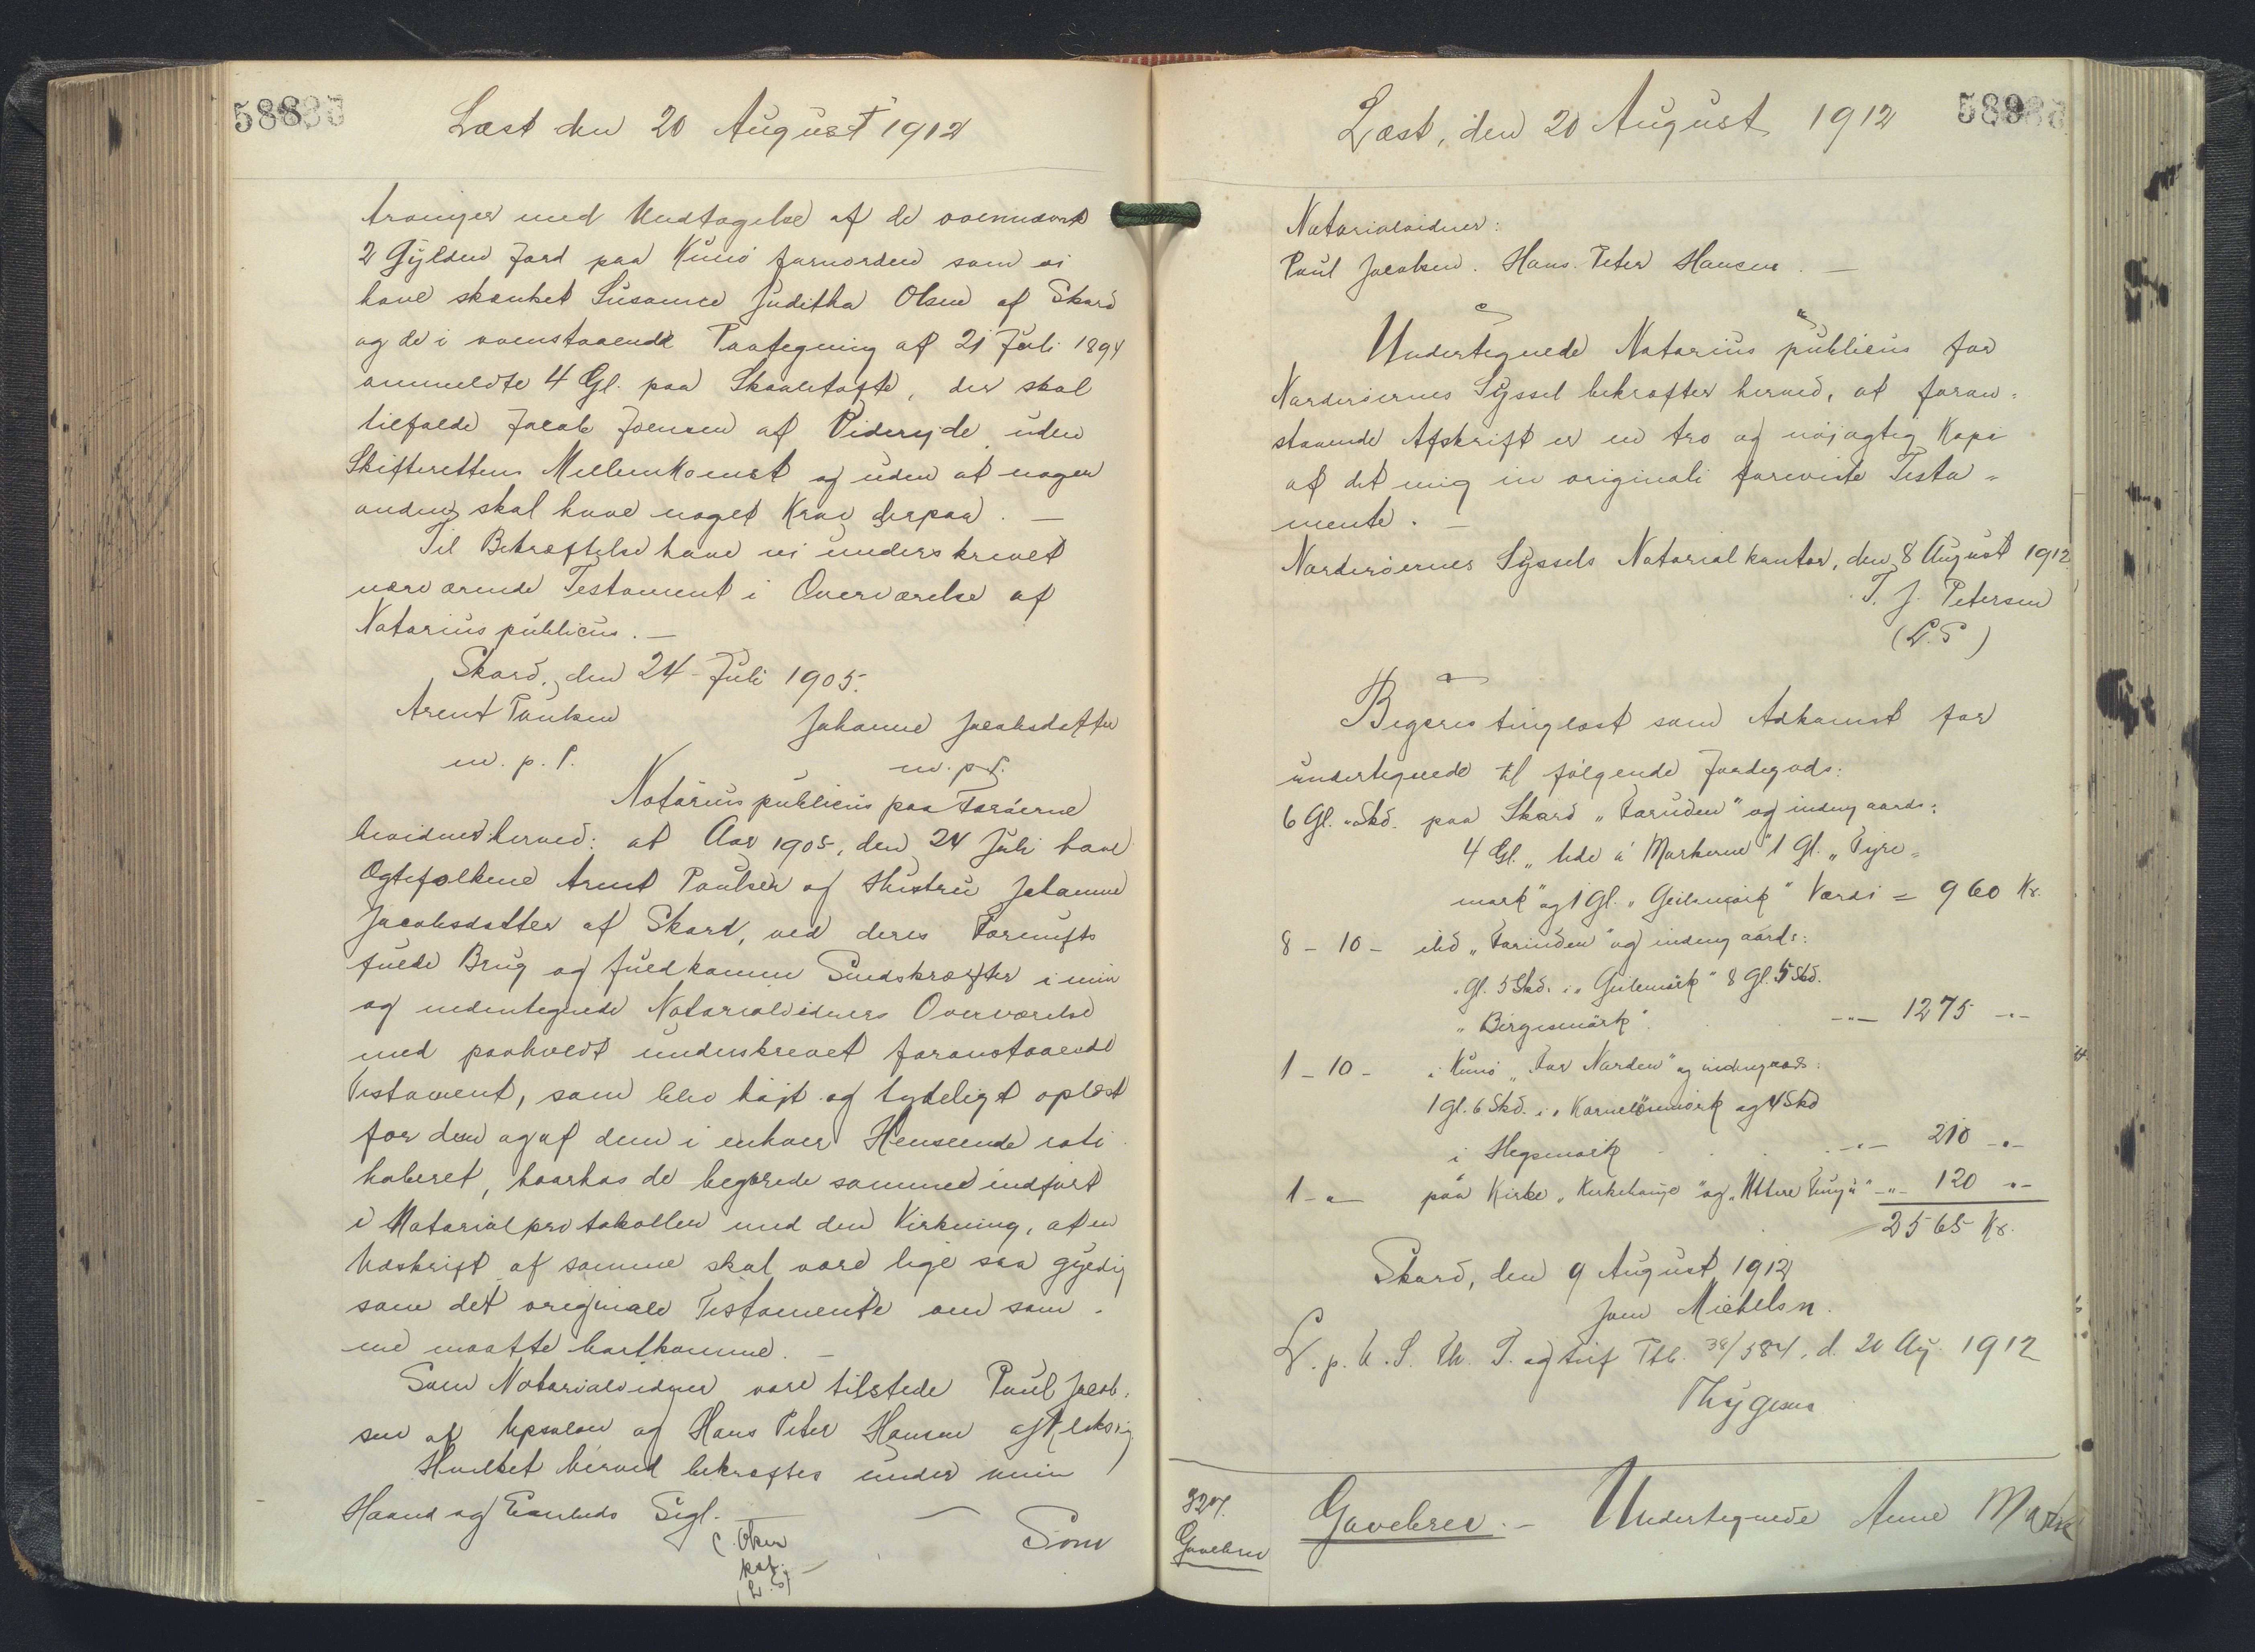 588
Læst den 20 August 1912
traniger med Undtagelse af de ovennævnte
2 Gylden Jord paa Kunö fornorden som vi
have skænket Susanna Juditha Olsen af Skard
og de i ovenstaaende Paategning af 21 Juli 1894
anmeldte 4 Gl. paa Skaaletofte, der skal
tilfalde Jacob Joensen af Viderejde uden
Skifterettens Mellemkomst og uden at nogen
anden skal have noget Krav derpaa. —
Til Bekræftelse have vi underskrevet
nærværende Testament i Overværelse af
Notarius publicus. —
Skard, den 24 Juli 1905.
Arent Paulsen Johanne Jacobsdatter
m. p. P. m. p. P.
Notarius publicus paa Færöerne
bevidner herved: at Aar 1905, den 24 Juli have
Ægtefolkene Arent Paulsen og Hustru Johanne
Jacobsdatter af Skard, ved deres Fornufts
fulde Brug og fuldkomne Sindskræfter i min
og undertegnede Notarialvidners Overværelse
med paaholdt underskrevet foranstaaende
Testament, som blev höjt og tydeligt oplæst
for dem og af dem i enhver Henseende rati
haberet, hvorhos de begærede samme indfört
i Notarialprotokollen med den Virkning, at en
Udskrift af samme skal være lige saa gyldig
som det originale Testamente om sam-
me maatte bortkomme. —
Som Notarialvidner vare tilstede Paul Jacob-
sen af Upsalen og Hans Peter Hansen af Klaksvig
Hvilket herved bekræftes under min
Haand og Embeds Segl. —
C. Olsen
kst.
(L. S)
Som
589
Læst, den 20 August 1912
Notarialvidner:
Paul Jacobsen. Hans Peter Hansen. —
Undertegnede Notarius publicus for
Norderöernes Syssel bekræfter herved, at foran-
staaende Afskrift er en tro og nöjagtig Kopi
af det mig in originali foreviste Testa-
mente. —
Norderöernes Syssels Notarialkontor, den 8 August 1912
T. J. Petersen
(L. S)
Begæres tinglæst som Adkomst for
undertegnede til fölgende Jordegods:
6 Gl. " Skd. paa Skard "Faruden" og indengaards:
4 Gl. " Ude á Markerne" 1 Gl. "Fyre-
mark" og 1 Gl. "Geilemörk" Værdi = 960 Kr.
8 - 10 - ibd "Farinden" og indengaards:
" Gl. 5 Skd. i "Geilemörk" 8 Gl. 5 Skd.
"Birgismörk" —"— 1275 -"-
1 - 10 - i Kunö "Far Norden" og indengaards:
1 Gl. 6 Skd. i " og 4 Skd
i Hegsmörk —"— 210 -"-
1 - " - paa Kirke "Kirkehauge" og "Uttere Tunga" -"- 120 -"-
2565 Kr.
Skard, den 9 August 1912
Joen Michelsen.
L. p. U. S. Th. T. og Tbl. 38/584, d. 20 Aug. 1912
Thygesen
327.
Gavebrev
Gavebrev. — Undertegnede Anne